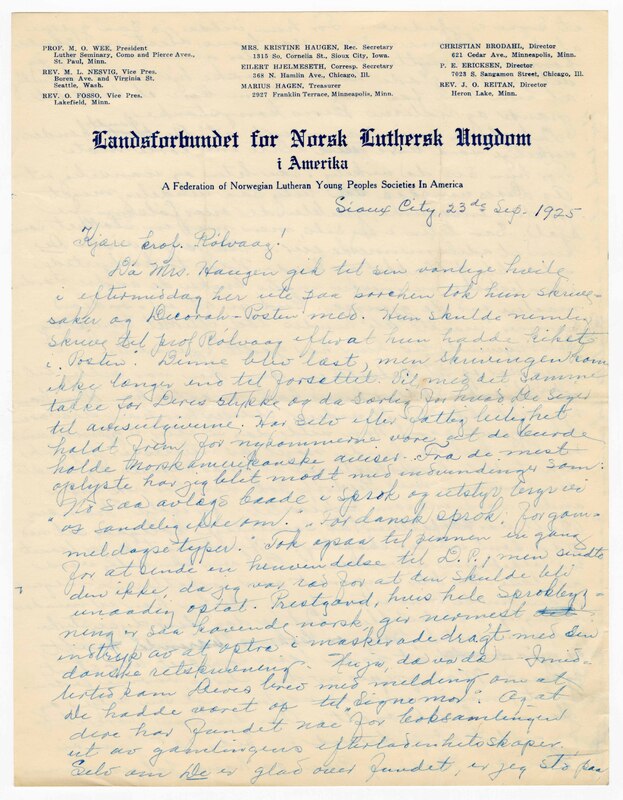 PROF. M. O. WEE, President
Luther Seminary, Como and Pierce Aves.,
St. Paul, Minn.
REV. M. L. NESVIG, Vice Pres.
Boren Ave. and Virginia St.
Seattle, Wash.
REV. O. FOSSO, Vice Pres.
Lakefield, Minn.
MRS. KRISTINE HAUGEN, Rec. Secretary
1315 So. Cornelia St., Sioux City, Iowa.
EILERT HJELMESETH, Corresp. Secretary
368 N. Hamlin Ave., Chicago, Ill.
MARIUS HAGEN, Treasurer
2927 Franklin Terrace, Minneapolis, Minn.
CHRISTIAN BRODAHL, Director
621 Cedar Ave., Minneapolis, Minn.
P. E. ERICKSEN, Director
7023 S. Sangamon Street, Chicago, Ill.
REV. J. O. REITAN, Director
Heron Lake, Minn.
Landsforbundet for Norsk Luthersk Ungdom
i Amerika
A Federation of Norwegian Lutheran Young Peoples Societies In America
Sioux City, 23de Sep. 1925
Kjære Prof. Rølvaag!
Da Mrs. Haugen gik til sin vanlige hvile
i eftermiddag her ute paa porchen tok hun skrive-
saker og Decorah-Posten med. Hun skulde nemlig
skrive til prof Rølvaag efterat hun hadde kikst
i "Posten". Denne blev læst, men skrivingen kom
ikke længer end til forsættet. Vil med det samme
takke for Deres stykke og da særlig for hvad De siger
til avisutgiverne. Har selv efter fattig leilighet
holdt frem for nykommerne vore at de burde
holde norskamerikanske aviser. Fra de mest
oplyste har jeg blit mødt med indvendinger som:
"No saa avlags baade i sprok og utstyr bryr vi
os sandelig ikke om." "For dansk sprok, for gam-
meldagse typer." Tok ogsaa til pennen en gang
for at sende en henvendelse til D.P., men sendte
den ikke, da jeg var ræd for at den skulde bli
unaadig optat. Prestgard, hvis hele
er saa havende norsk, gir nærmest
indtryk av at optræ i maskeradedragt med sin
danske retskrivning. da va da. Imid-
lertid kom Deres brev med melding om at
De hadde været op til "Signe mor". Og at
dere har fundet noe for boksamlingen
ut av gamlingens efterladenhetsskaper.
Selv om De er glad over fundet, er jeg